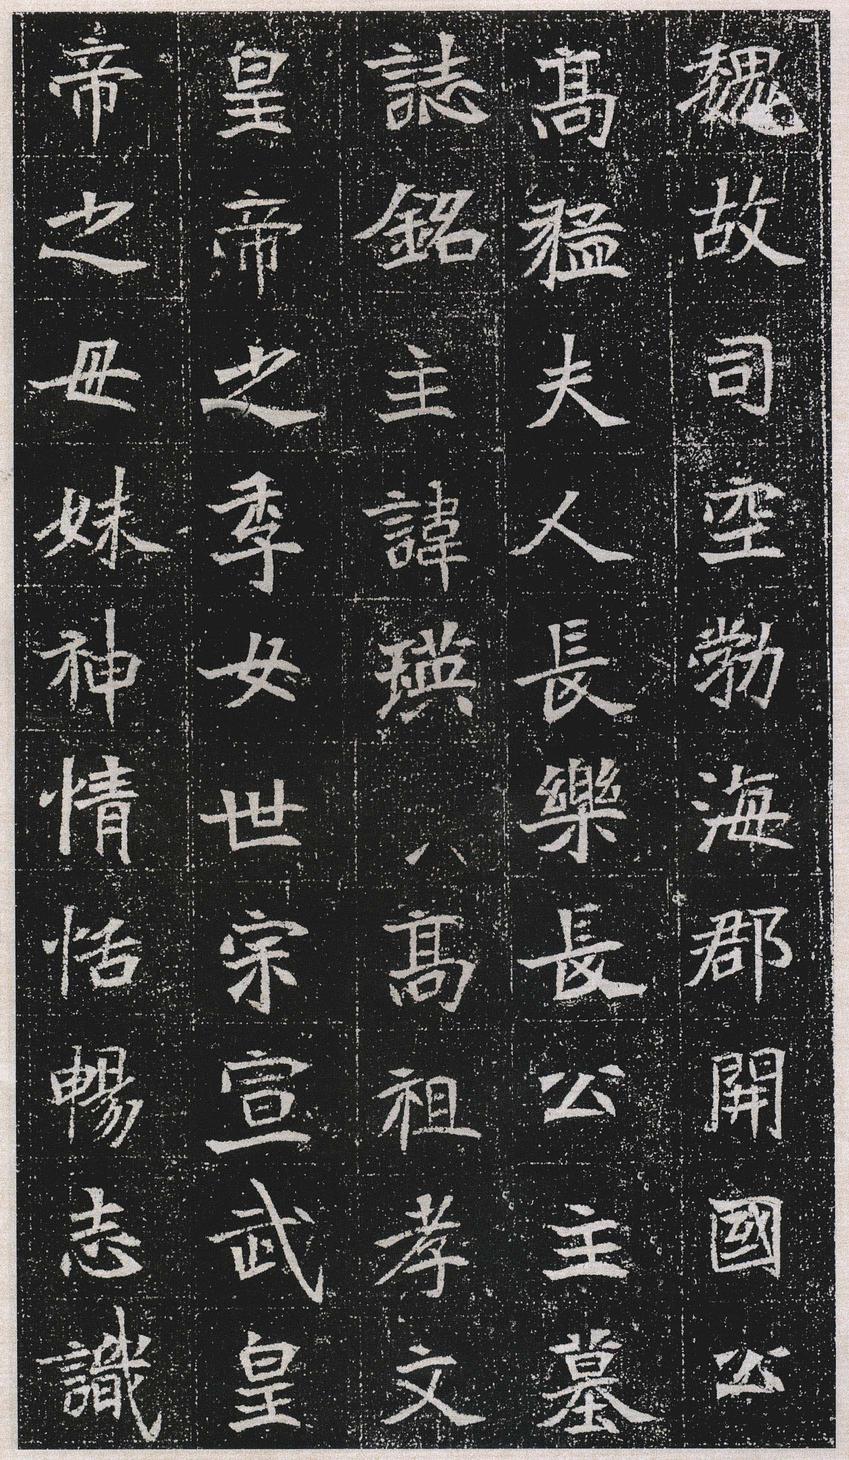 魏故司空勃海郡開國公
髙猛夫人長樂長公主墓
誌銘主諱瑛八髙祖孝文
皇帝之季女世宗宣武皇
帝之毌妹神情恬暢志識